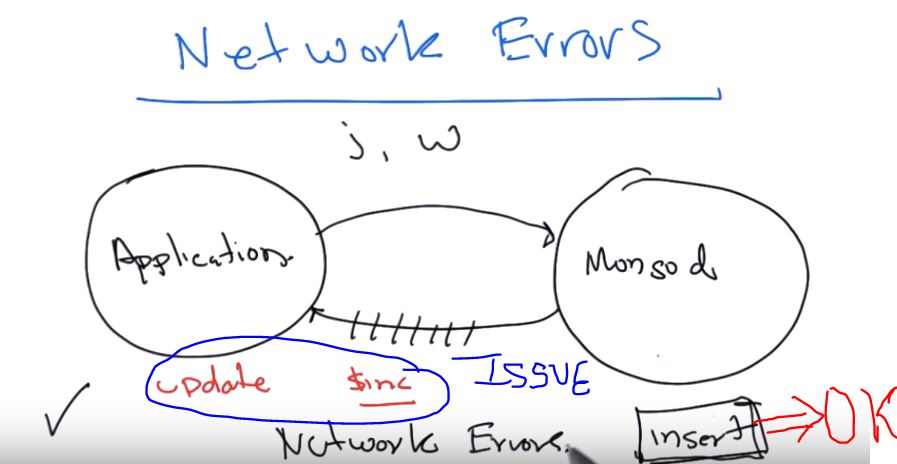 Network Errors
j, w
Application
Mongod
ISSUE
update $inc
Network Errors.
insert OK